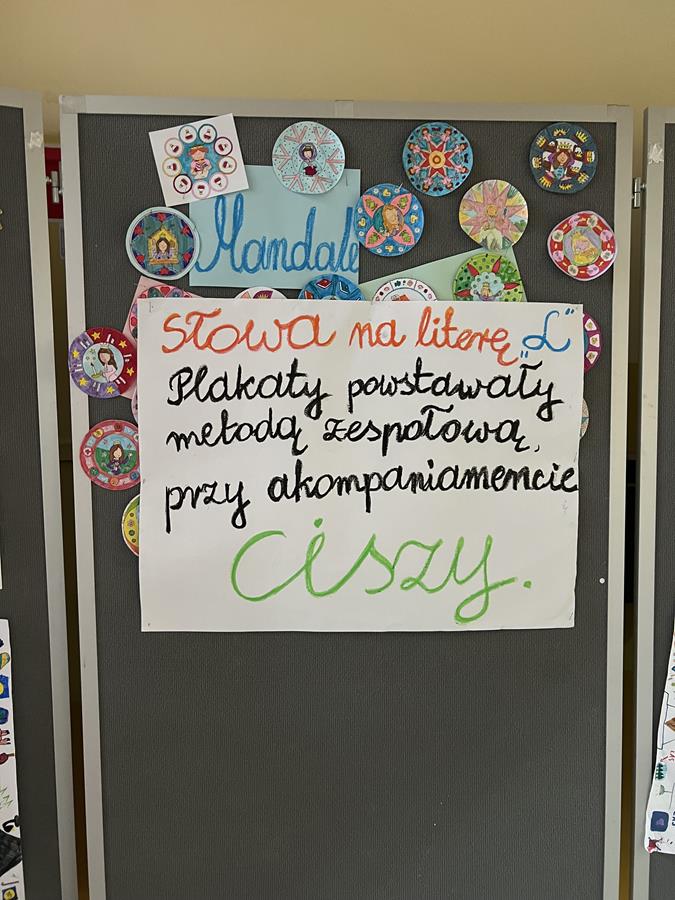 Mandale
Słowa na literę „L”
Plakaty powstawały
metodą zespołową,
przy akompaniamencie
ciszy.